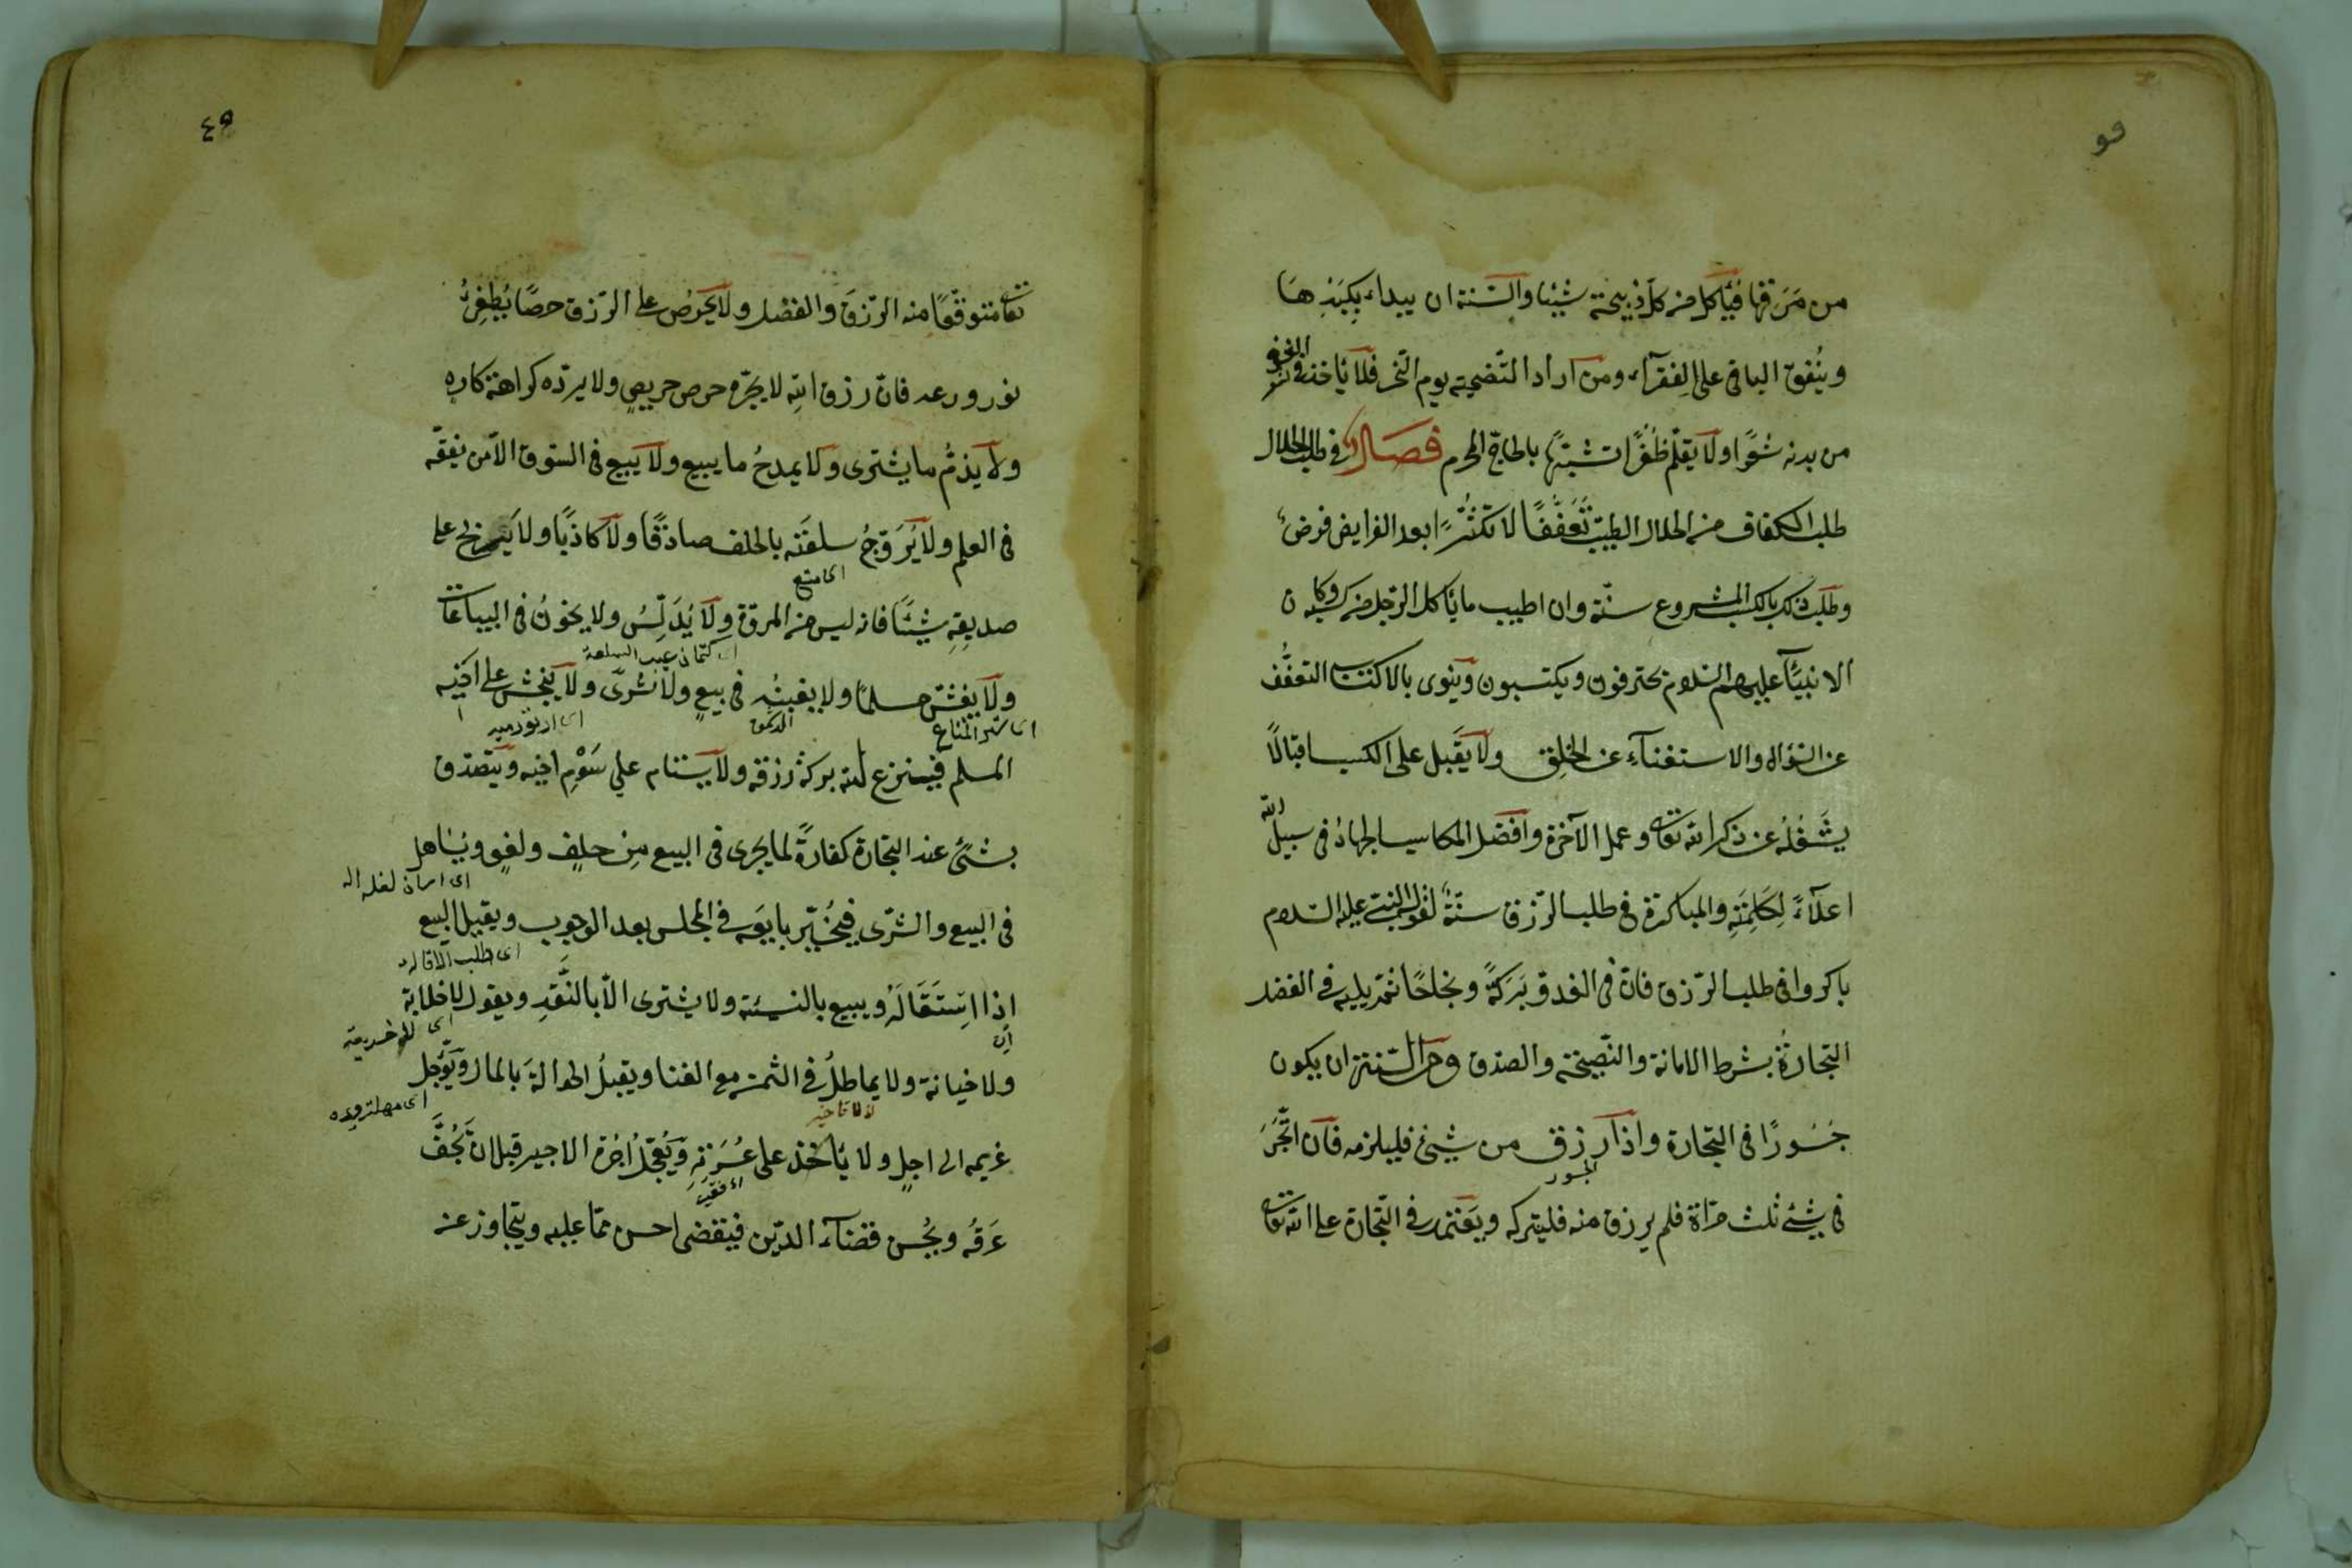 من مَرَقتها فيأكل من كلّ ذبيحة شيئا والسّنة ان يبداء بكبدها
وينُفق الباقى على الفقرآء ومن اراد التّضحية يوم النّحر فلا يأخذ فى العشر
من بدنه شعرًا ولا يقلّم ظُفُرًا تشبّهًا بالحاجّ المحرم فصل فى طلب الحلال
طلب الكفاف من الحلال الطيّب تَعَفُّفًا لا تكثّرًا بعد الفرايض فرضٌ
وطلب ذلك بالكسب المشروع سنّة وان اطيب ما يأكل الرّجل من كسبه وكان
الانبيآء عليهم السّلام يحترفون ويكتسبون وينوى بالاكتساب التعفُّف
عن السّؤال والاستغنآء عن الخلق ولا يقبل على الكسب اقبالًا
يشغَلُه عن ذكر الله تعالى وعمل الآخرة وافضل المكاسب الجهادُ فى سبيل الله
اعلآءً لِكَلِمَتِه والمباكرة فى طلب الرّزق سنّةٌ لقول النّبىّ عليه السّلام
باكروا فى طلب الرّزق فانّ فى الغدوّ بَرَكةً ونجاحًا ثمّ يليه فى الفضل
التجارةُ بشرط الامانة والنّصيحة والصّدق ومن السّنة ان يكون
جَسُورًا فى التجارة واذا رزق من شيئ فليلزمه فان اتَّجَرَ
الجسور
فى شيئ ثلث مرّاة فلم يرزق منه فليتركه ويعتمد فى التّجارة على الله تعالى
٤٩
تعالى متوقّعًا منه الرّزقَ والفضل ولا يحرِصُ على الرّزق حرصًا يُطفِئُ
نور ورعه فانّ رزق الله لا يجرّه حرص حريصٍ ولا يردّه كراهة كاره
ولا يذمُّ ما يشترى ولا يمدحُ ما يبيع ولا يبيع فى السّوق الّا من تفقّه
فى العلم ولا يُرَوّجُ سلعَته بالحلف صادقًا ولا كاذبًا ولا يربح على
اى متاع
صديقِهِ شيئًا فانه ليس من المروّة ولا يُدَلِّسُ ولا يخونُ فى البياعات
اى كتمان عيب السلعة
ولا يغشّ مسلمًا ولا يغبنُه فى بيعٍ ولا شرًى ولا ينجش على اخيه
المسلم فينزع الله بركة رزقه ولا يستام على سَوْمِ اخيه ويتصدّق
بشئٍ عند التجارة كفارةً لما يجرى فى البيع مِن حلفٍ ولغوٍ ويُساهل
فى البيع والشّرى فيُخيّر بايعَه فى المجلس بعد الوجوب ويقيل البيع
اى طلب الاقالة
اذا استَقَالَهُ ويبيع بالنسيئة ولا يشترى الّا بالنَّقدِ ويقول لا خلابة
اى لا خديعة
ولا خيانة ولا يماطلُ فى الثمن مع الغنا ويقبلُ الحوالةَ بالمال ويؤجّل
غريمه الى اجلٍ ولا يأخذ على عُسرَتِهِ ويُعجّلُ اُجْرَة الاجير قبل ان يَجُفَّ
عَرَقُه ويُحسن قضآء الدّين فيقضى احسن ممّا عليه ويتجاوز عن